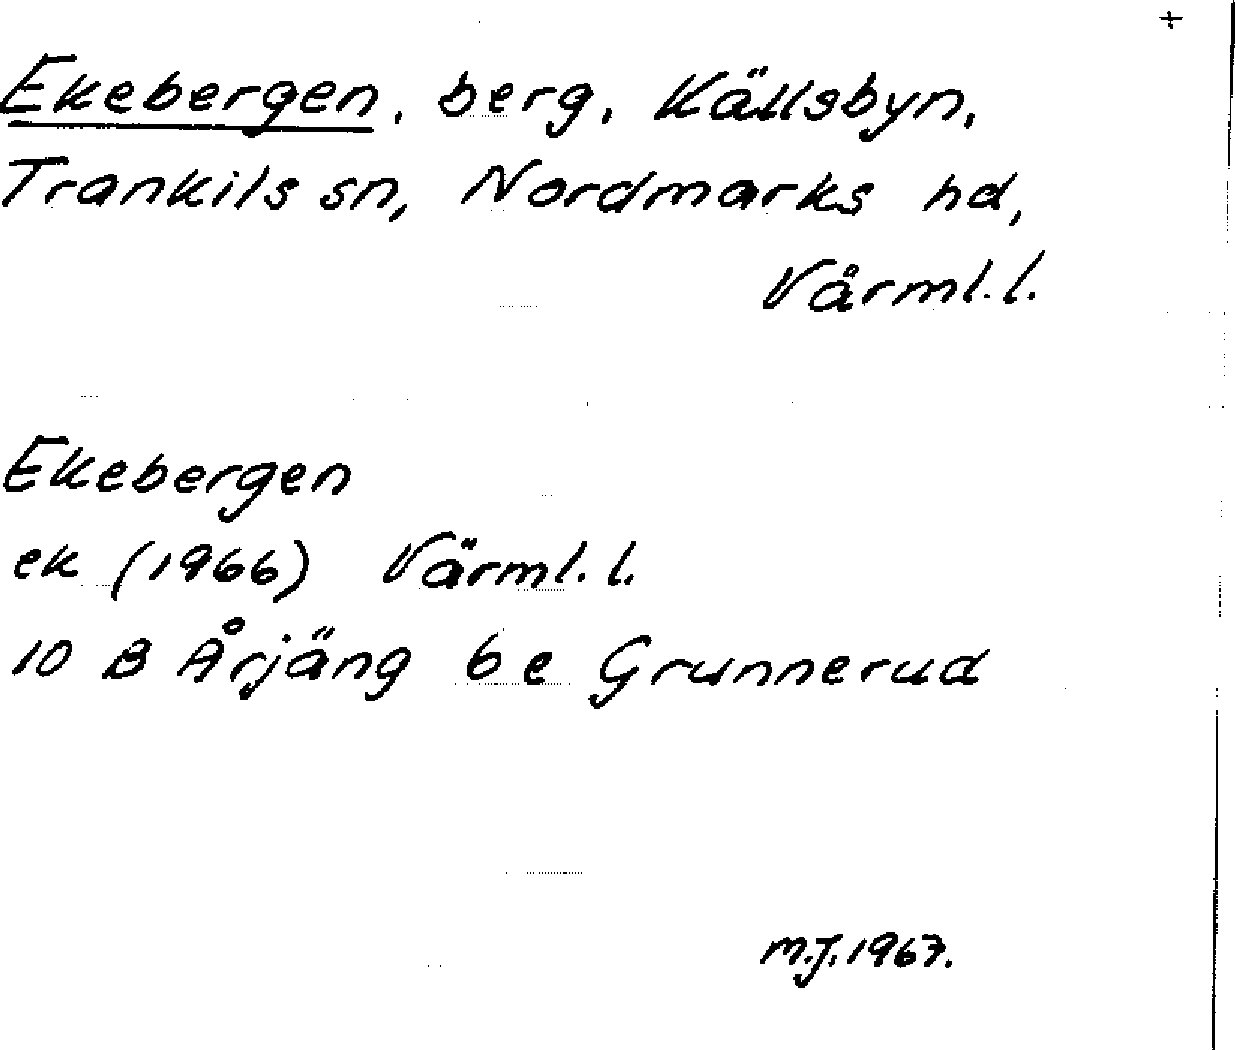 +
Ekebergen, berg, Källsbyn,
Trankils sn, Nordmarks hd,
Värml.l.
Ekebergen
ek (1966) Värml.l.
10 B Årjäng 6e Grunnerud
M.J. 1967.